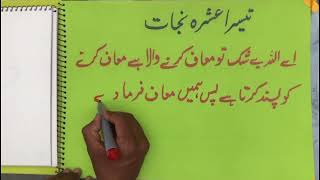 تیسرا عشرہ نجات
اے اللہ بے شک تو معاف کرنے والا ہے معاف کرنے
کو پسند کرتا ہے پس ہمیں معاف فرما دے